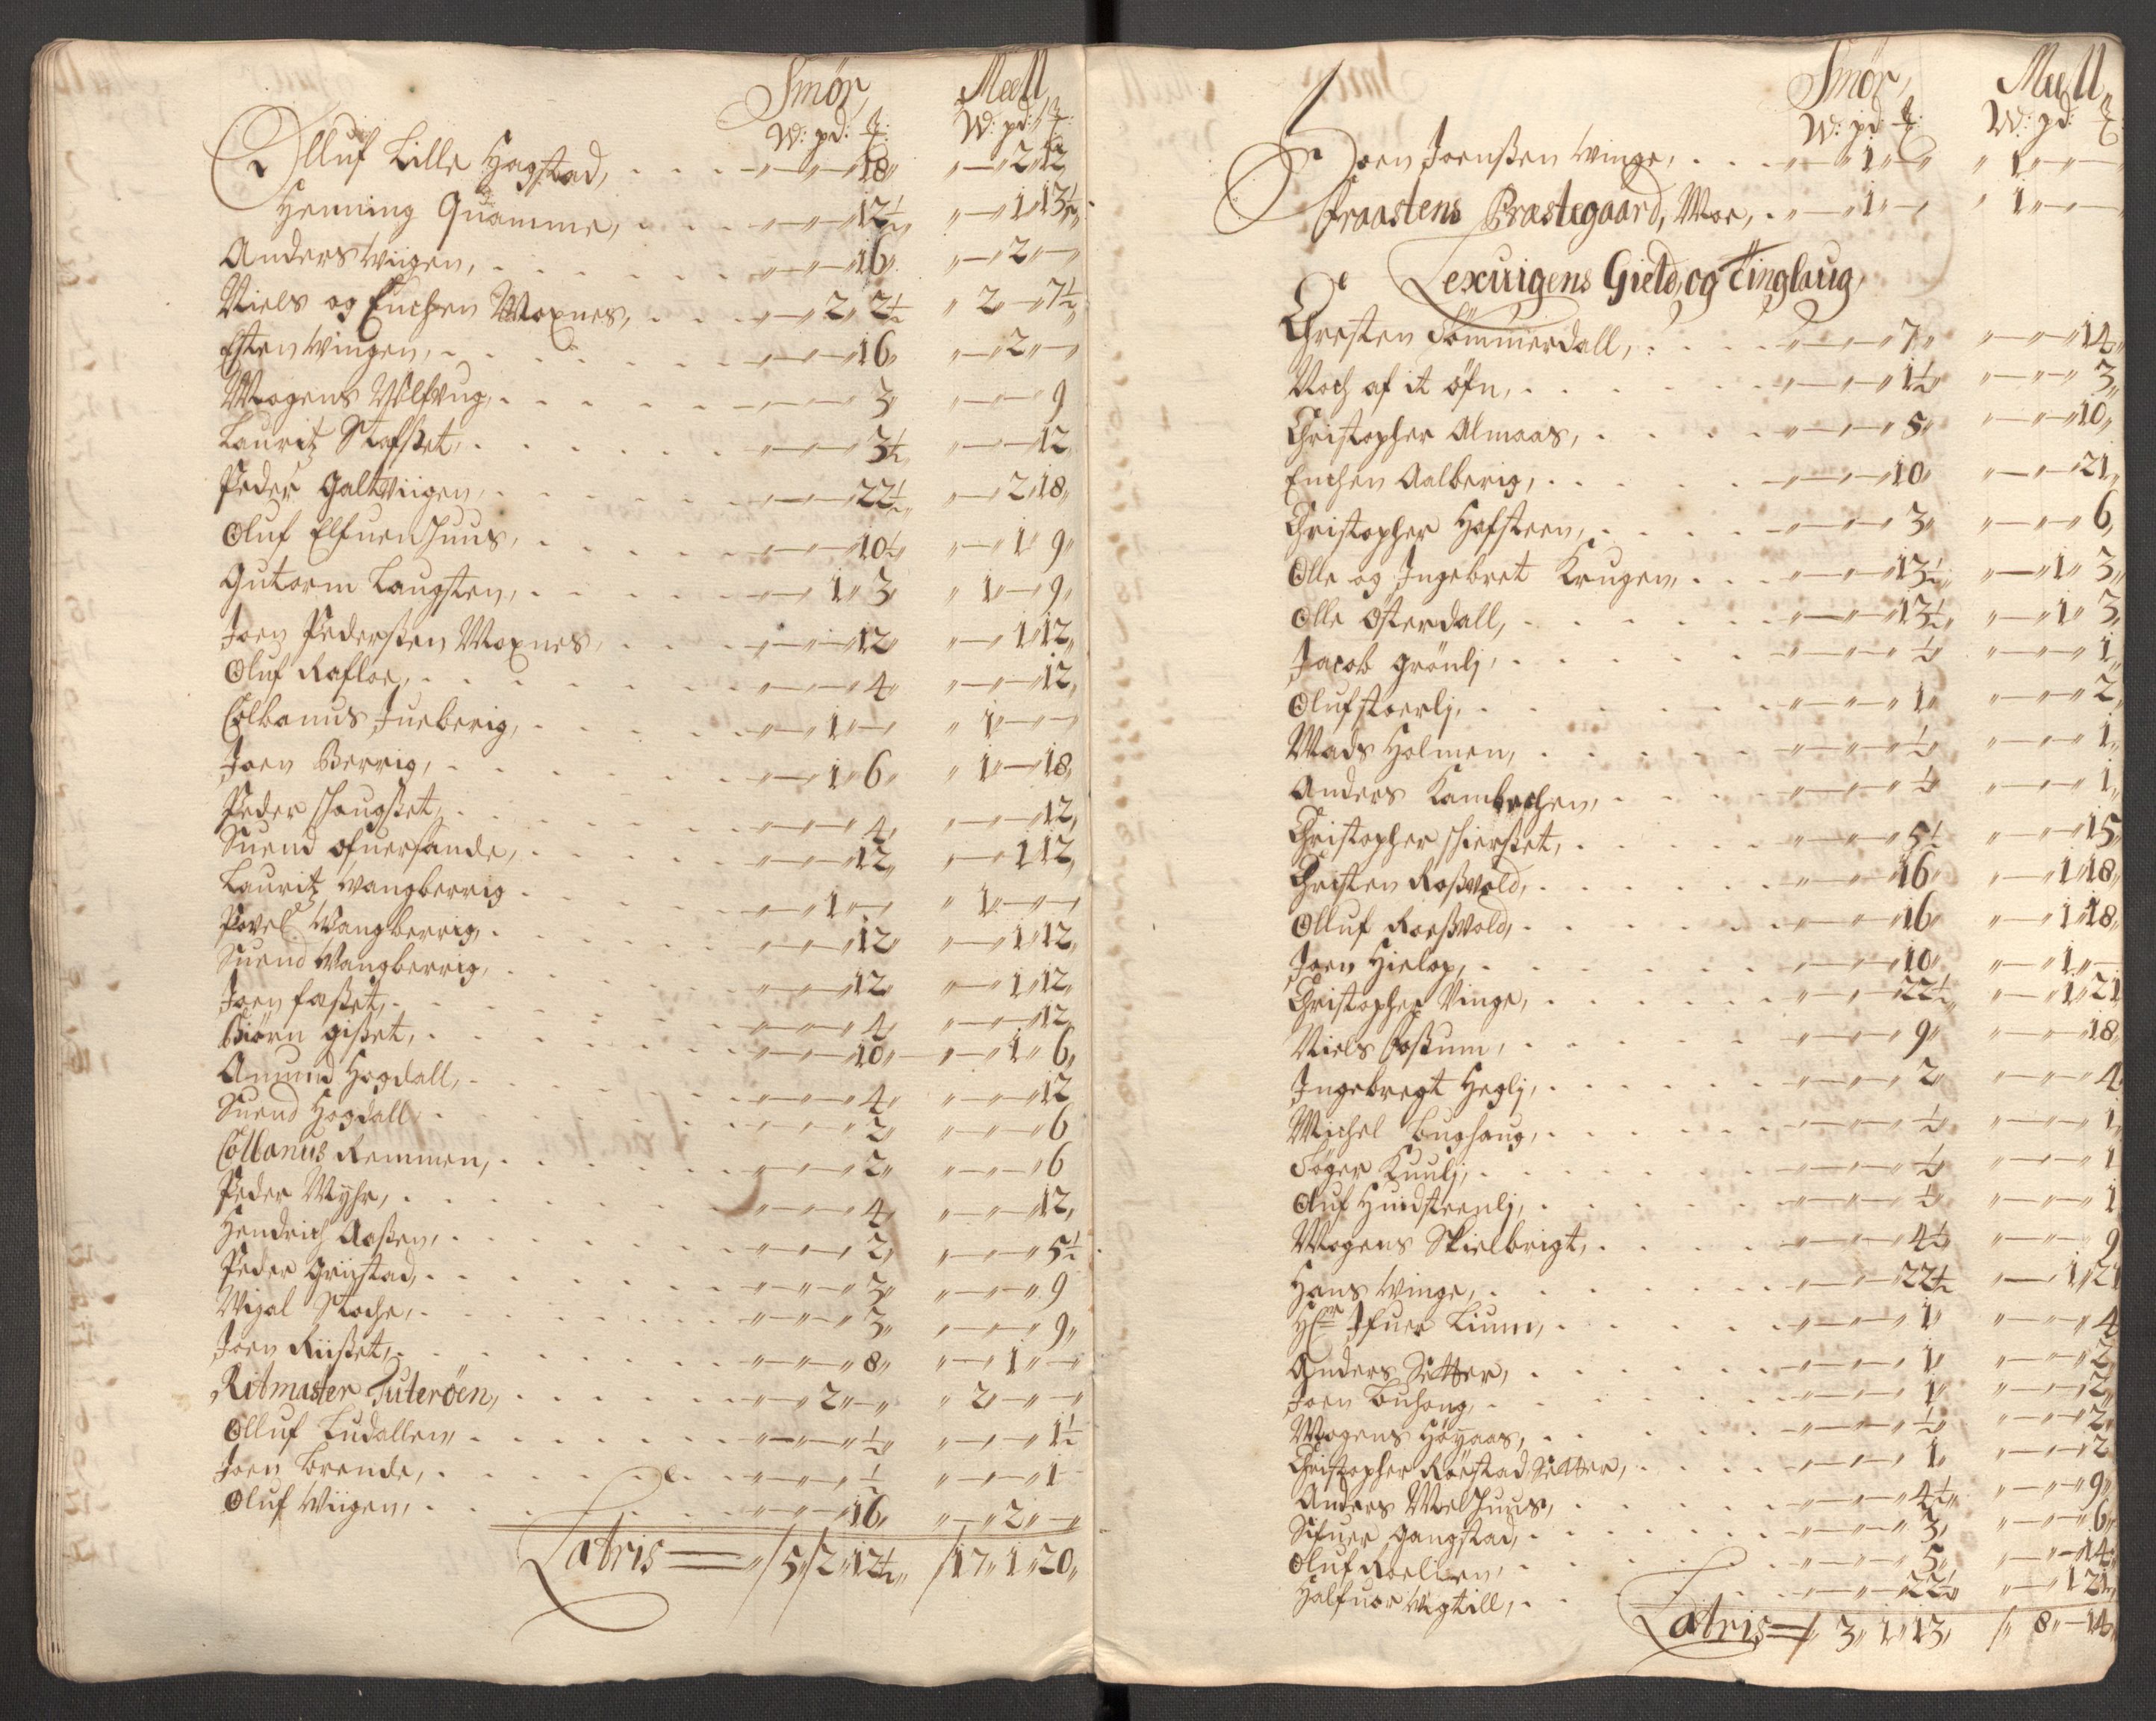 Smør, Meell
W: pd: ℔: W: pd: ℔:
Olluf Lille Hagstad, . . . - „ — „ — „ 18 „ „ — „ 2 „ 12
Henning Quamme, . . . „ — „ — „ 12½ „ „ — „ 1 „ 13½ „
Anders Wiigen, . . . „ — „ — „ 16 „ „ — „ 2 „ —
Niels og Enchen Moxnes, . . . „ — „ 2 „ 2½ „ 2 „ — „ 7½
Esten Wingen, . . . „ — „ — „ 16 „ „ — „ 2 „ —
Mogens Wlfvug, . . . „ — „ — „ 3 „ „ — „ — „ 9
Lauritz Stafset, . . . „ — „ — „ 3½ „ — „ — „ 12
Peder Galtviigen, . . . „ — „ — „ 22½ „ „ — „ 2 „ 18 „
Oluf Elfuen Juus, . . . „ — „ — „ 10½ „ „ — „ 1 „ 9 „
Gutorm Laugsten, . . . „ — „ 1 „ 3 „ „ 1 „ — „ 9 „
Joen Pederssen Moxnes, . . . „ — „ — „ 12 „ „ — „ 1 „ 12 „
Oluf Rafloe, . . . „ — „ — „ 4 „ „ — „ — „ 12 „
Colbanus Jueberig, . . . „ — „ 1 „ — „ 1 „ — „ —
Joen Berrig, . . . „ — „ 1 „ 6 „ „ 1 „ — „ 18 „
Peder Haugset, . . . „ — „ — „ 4 „ „ — „ — „ 12 „
Suend Ofuersande, . . . „ — „ — „ 12 „ „ — „ 1 „ 12 „
Lauritz Wangberrig . . . „ — „ 1 „ — „ 1 „ — „ —
Povel Wangberrig, . . . „ — „ — „ 12 „ „ — „ 1 „ 12 „
Suend Wangberrig, . . . „ — „ — „ 12 „ „ — „ 1 „ 12 „
Joen Fasset, . . . „ — „ — „ 4 „ „ — „ — „ 12 „
Biörn Gisset, . . . „ — „ — „ 10 „ „ — „ 1 „ 6 „
Amund Hogdall, . . . „ — „ — „ 4 „ „ — „ — „ 12
Suend Hogdall . . . „ — „ — „ 2 „ „ — „ — „ 6
Collanus Remmen, . . . „ — „ — „ 2 „ „ — „ — „ 6
Peder Myhr, . . . „ — „ — „ 4 „ „ — „ — „ 12 „
Hendrich Aassen, . . . „ — „ — „ 2 „ „ — „ — „ 5½
Peder Griistad, . . . „ — „ — „ 3 „ „ — „ — „ 9
Migal Stoche, . . . „ — „ — „ 3 „ „ — „ — „ 9 „
Joen Riisset, . . . „ — „ — „ 8 „ „ — „ 1 „ —
Ritmaster Tuteröen, . . . „ — „ 2 „ — „ „ 2 „ — „ —
Olluf Ludallen, . . . „ — „ — „ ½ „ „ — „ — „ 1½
Joen Brende, . . . „ — „ — „ ½ „ — „ — „ 1
Oluf Wiigen, . . . „ — „ — „ 16 „ „ — „ 2 „ —
Latris = „ 5 „ 2 „ 12½ „ 17 „ 1 „ 20 „
Smør, Meell,
W: pd: ℔: W: pd: ℔
Joen Joenssen Winge, . . . „ — „ 1 „ — „ 1 „ — „ —
Fraastens Præstegaard, Moe, . „ — „ 1 „ — „ 1 „ — „ —
Lexuigens Gield, og Tinglaug,
Christen Sömmerdall, . . . „ — „ — „ 7 „ „ — „ — „ 14 „
Noch af it öfn, . . . „ — „ — „ 1½ „ „ — „ — „ 3 „
Christopher Almaas, . . . „ — „ — „ 5 „ „ — „ — „ 10 „
Enchen Aalberig, . . . „ — „ — „ 10 „ „ — „ — „ 21 „
Christopher Hofsteen, . . . „ — „ — „ 3 „ „ — „ — „ 6 „
Olle og Ingebret Krugen, . . . „ — „ — „ 13½ „ „ — „ 1 „ 3 „
Olle Österdall, . . . „ — „ — „ 13½ „ „ — „ 1 „ 3 „
Jacob Grönlj, . . . „ — „ — „ ½ „ „ — „ — „ 1 „
Oluf Stoerlj, . . . „ — „ — „ 1 „ „ — „ — „ 2 „
Mads Holmen, . . . „ — „ — „ ½ „ „ — „ — „ 1 „
Anders Kambechen, . . . „ — „ — „ ½ „ „ — „ — „ 1 „
Christopher Hierset, . . . „ — „ — „ 5½ „ — „ — „ 15 „
Christen Rossvold, . . . „ — „ — „ 16 „ „ — „ 1 „ 18 „
Olluf Roessvold, . . . „ — „ — „ 16 „ „ — „ 1 „ 18 „
Joen Hielop, . . . „ — „ — „ 10 „ „ — „ 1 „ —
Christopher Vinge, . . . „ — „ — „ 22½ „ „ — „ 1 „ 21
Niels Fossum, . . . „ — „ — „ 9 „ „ — „ — „ 18 „
Ingebregt Heglj, . . . „ — „ — „ 2 „ „ — „ — „ 4
Michel Bughaug, . . . „ — „ — „ ½ „ „ — „ — „ 1 „
Töger Kuulj, . . . „ — „ — „ ½ „ „ — „ — „ 1
Oluf Hundsteenlj, . . . „ — „ — „ ½ „ „ — „ — „ 1
Mogens Skielbrigt, . . . „ — „ — „ 4½ „ — „ — „ 9
Hans Winge, . . . „ — „ — „ 22½ „ — „ 1 „ 21
Hr Ifuer Lium, . . . „ — „ — „ 1 „ „ — „ — „ 4
Anders Sætter, . . . „ — „ — „ 1 „ „ — „ — „ 2 „
Joen Buhoug, . . . „ — „ — „ 1 „ „ — „ — „ 2 „
Mogens Höyaas, . . . „ — „ — „ ½ „ „ — „ — „ 2 „
Christopher Röestad Sætter, . . . „ — „ — „ 1 „ „ — „ — „ 2
Anders Moel Juus, . . . „ — „ — „ 4½ „ „ — „ — „ 9 „
Sifuer Gangstad, . . . „ — „ — „ 3 „ „ — „ — „ 6 „
Oluf Roelien, . . . „ — „ — „ 5 „ „ — „ — „ 14 „
Halfuor Wigtill, . . . „ — „ — „ 22½ „ „ — „ 1 „ 21 „
Latris = „ 3 „ 1 „ 13 „ „ 8 „ — 14 „